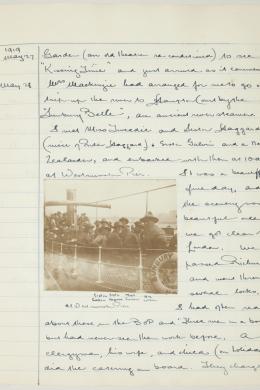 1919
May 27
Garden (an old theatre re-conditioned) to see
"Kissing Time" and just arrived as it commenced
May 28
Mrs Mackenzie had arranged for me to go a
trip up the river to Hampton Court by the
"Sunbury Belle", an ancient river steamer
I met Miss Tweedie and Sister Haggard
(niece of Rider Haggard) & Sister Salmon and a New
Zealander, and embarked with them at 10am
at Westminster Pier.
It was a beautiful
fine day, and
the scenery was
beautiful once
we got clear of
London. We
passed Richmond
and went through
several locks.
at Westminster Pier
I had often read
about these in the BOP and "Three men in a boat"
but had never seen them work before. A
clergyman, his wife, and child (on holiday)
did the catering on board. They charged